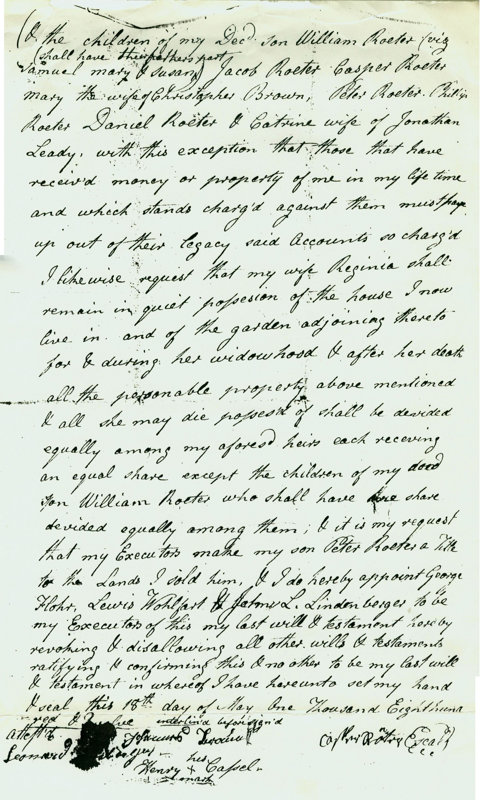 (& the children of my Decd son William Roeter (viz
(shall have their fathers part
Samuel mary & Susan) Jacob Roeter Casper Roeter
mary the wife of Christopher Brown, Peter Roeter. Philip
Roeter Daniel Roeter & Catrine wife of Jonathan
Leady, with this exception that those that have
receiv'd money or property of me in my life time
and which stands charg'd against them must pay
up out of their legacy said Accounts so charg'd
I likewise request that my wife Reginia shall
remain in quiet possesion of the house I now
live in and of the garden adjoining thereto
for & during her widowhood & after her death
all the personable property above mentioned
& all she may die possest of shall be devided
equally among my aforesd heirs each receving
an equal share except the children of my decd
son William Roeter who shall have one share
devided equally among them; & it is my request
that my Executors make my son Peter Roeter a Title
to the Lands I sold him, & I do hereby appoint George
Flohr, Lewis Wohlfart & James L. Lindenberger to be
my Executors of this my last will & testament hereby
revoking & disallowing all other wills & testaments
ratifying & confirming this & no other to be my last will
& testament in whereof I have hereunto set my hand
& seal this 18th day of May One Thousand Eighthund
red & underlin'd before sign'd
attest
Leonard
his
Henry X Cassel
mark